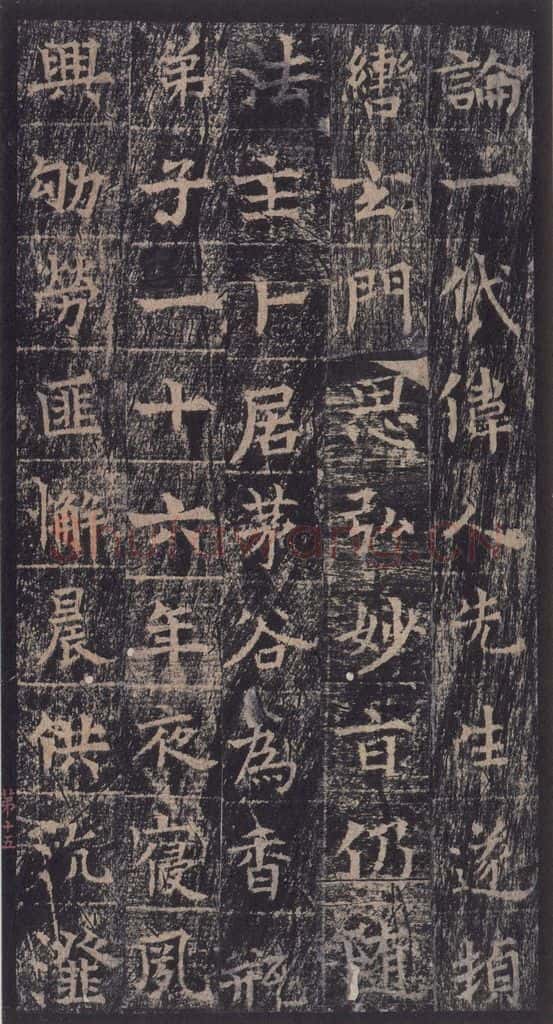 論一代偉人先生遂頓
轡玄門思弘妙旨仍隨
法主卜居茅谷為香瓶
弟子一十六年夜寢夙
興劬勞匪懈晨供沆瀣
第十五
shufawang.cn